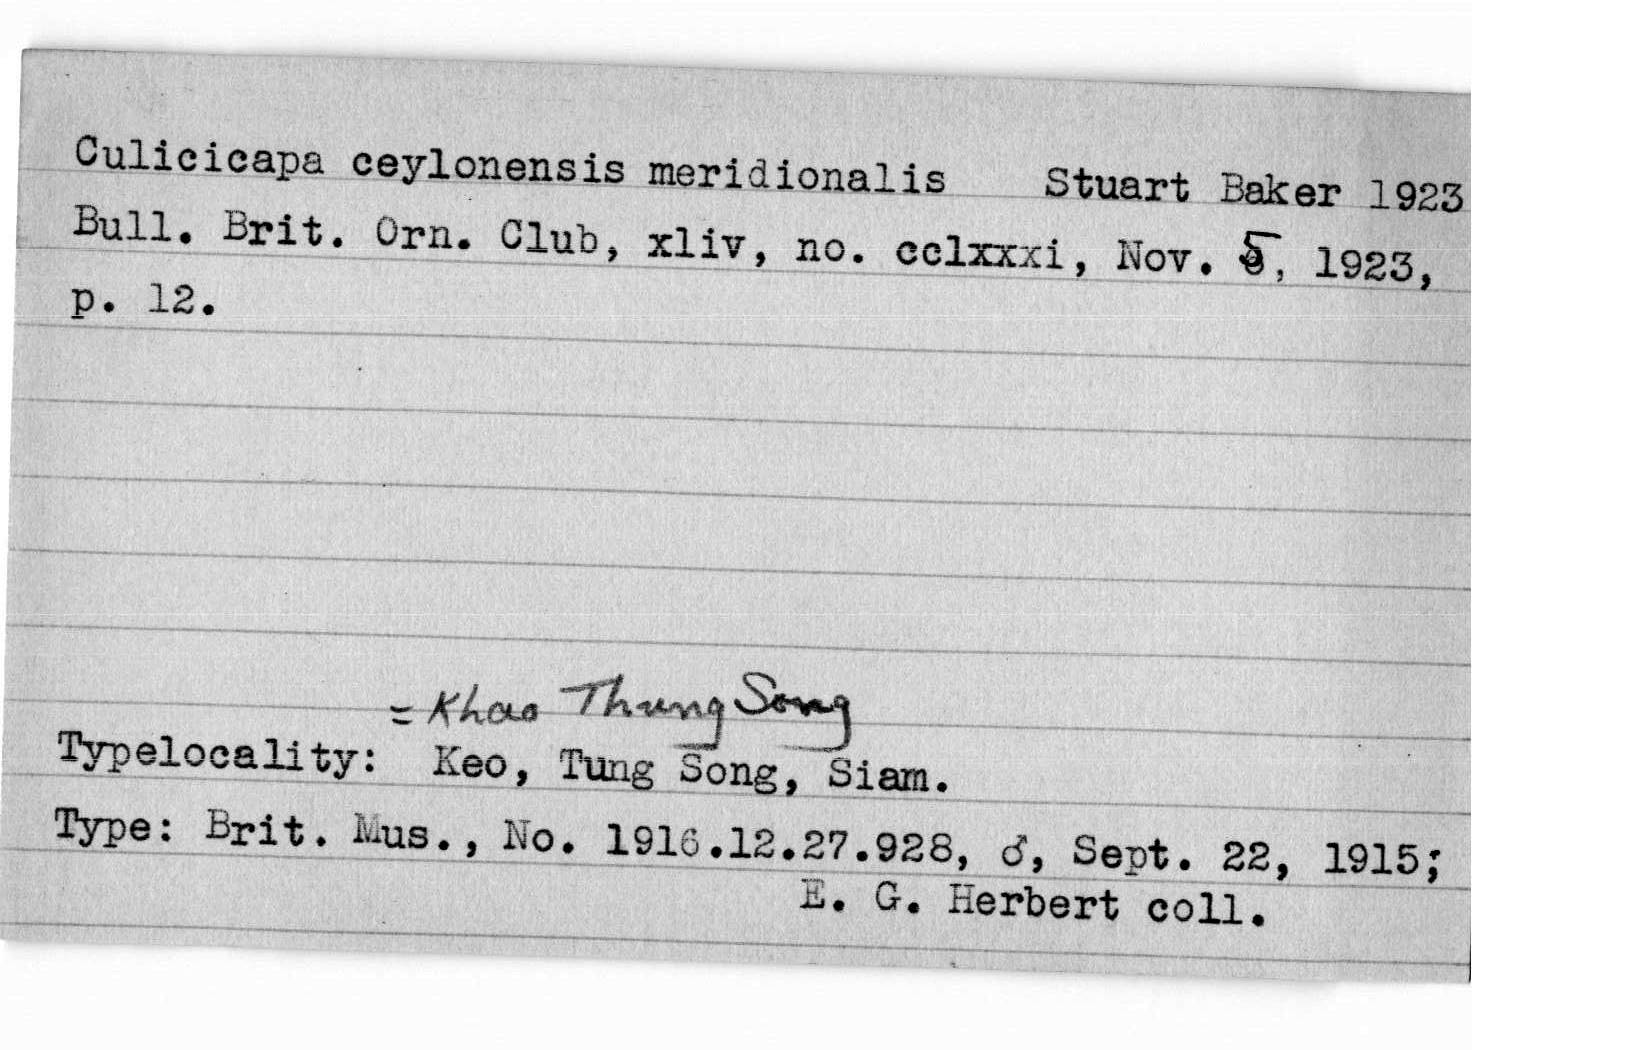 Culicicapa ceylonensis meridionalis Stuart Baker 1923
Bull. Brit. Orn. Club, xliv, no. cclxxxi, Nov. 5, 1923,
p. 12.
= Khao Thung Song
Typelocality: Keo, Tung Song, Siam.
Type: Brit. Mus., No. 1916.12.27.928, ♂, Sept. 22, 1915;
E. G. Herbert coll.